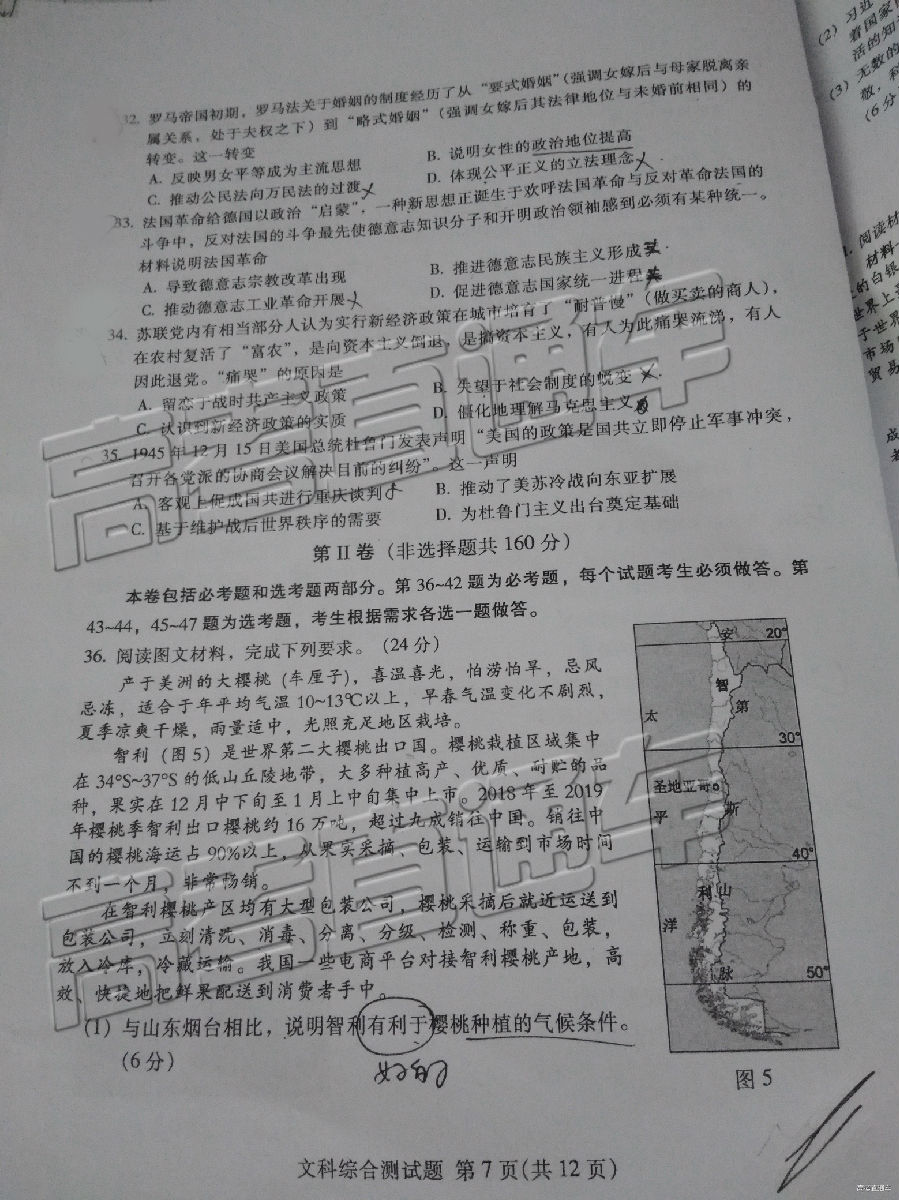 32. 罗马帝国初期，罗马法关于婚姻的制度经历了从“要式婚姻”（强调女嫁后与母家脱离亲
属关系，处于夫权之下）到“略式婚姻”（强调女嫁后其法律地位与未婚前相同）的
转变。这一转变
A. 反映男女平等成为主流思想 B. 说明女性的政治地位提高
C. 推动公民法向万民法的过渡 D. 体现公平正义的立法理念
33. 法国革命给德国以政治“启蒙”，一种新思想正诞生于欢呼法国革命与反对革命法国的
斗争中，反对法国的斗争最先使德意志知识分子和开明政治领袖感到必须有某种统一。
材料说明法国革命
A. 导致德意志宗教改革出现 B. 推进德意志民族主义形成
C. 推动德意志工业革命开展 D. 促进德意志国家统一进程
34. 苏联党内有相当部分人认为实行新经济政策在城市培育了“耐普慢”（做买卖的商人），
在农村复活了“富农”，是向资本主义倒退，是搞资本主义，有人为此痛哭流涕，有人
因此退党。“痛哭”的原因是
A. 留恋于战时共产主义政策 B. 失望于社会制度的蜕变
C. 认识到新经济政策的实质 D. 僵化地理解马克思主义
35. 1945年12月15日美国总统杜鲁门发表声明“美国的政策是国共立即停止军事冲突，
召开各党派的协商会议解决目前的纠纷”。这一声明
A. 客观上促成国共进行重庆谈判 B. 推动了美苏冷战向东亚扩展
C. 基于维护战后世界秩序的需要 D. 为杜鲁门主义出台奠定基础
第II卷（非选择题共160分）
本卷包括必考题和选考题两部分。第36~42题为必考题，每个试题考生必须做答。第
43~44，45~47题为选考题，考生根据需求各选一题做答。
36. 阅读图文材料，完成下列要求。（24分）
产于美洲的大樱桃（车厘子），喜温喜光，怕涝怕旱，忌风
忌冻，适合于年平均气温10~13℃以上，早春气温变化不剧烈，
夏季凉爽干燥，雨量适中，光照充足地区栽培。
智利（图5）是世界第二大樱桃出口国。樱桃栽植区域集中
在34°S~37°S的低山丘陵地带，大多种植高产、优质、耐贮的品
种，果实在12月中下旬至1月上中旬集中上市。2018年至2019
年樱桃季智利出口樱桃约16万吨，超过九成销往中国。销往中
国的樱桃海运占90%以上，从果实采摘、包装、运输到市场时间
不到一个月，非常畅销。
在智利樱桃产区均有大型包装公司，樱桃采摘后就近运送到
包装公司，立刻清洗、消毒、分离、分级、检测、称重、包装，
放入冷库，冷藏运输。我国一些电商平台对接智利樱桃产地，高
效、快捷地把鲜果配送到消费者手中。
(1) 与山东烟台相比，说明智利有利于樱桃种植的气候条件。
（6分）
安 20°
智
太 第
30°
圣地亚哥
平 斯
40°
利 山
洋
脉 50°
图5
文科综合测试题 第7页(共12页)
高考直通车
高考直通车
(2) 习近
着国家
活的知
(3) 无数的
敬，科
（6分
阅读材
材料一
的白银
世界上
于世界
市场
贸易
成
高考直通车